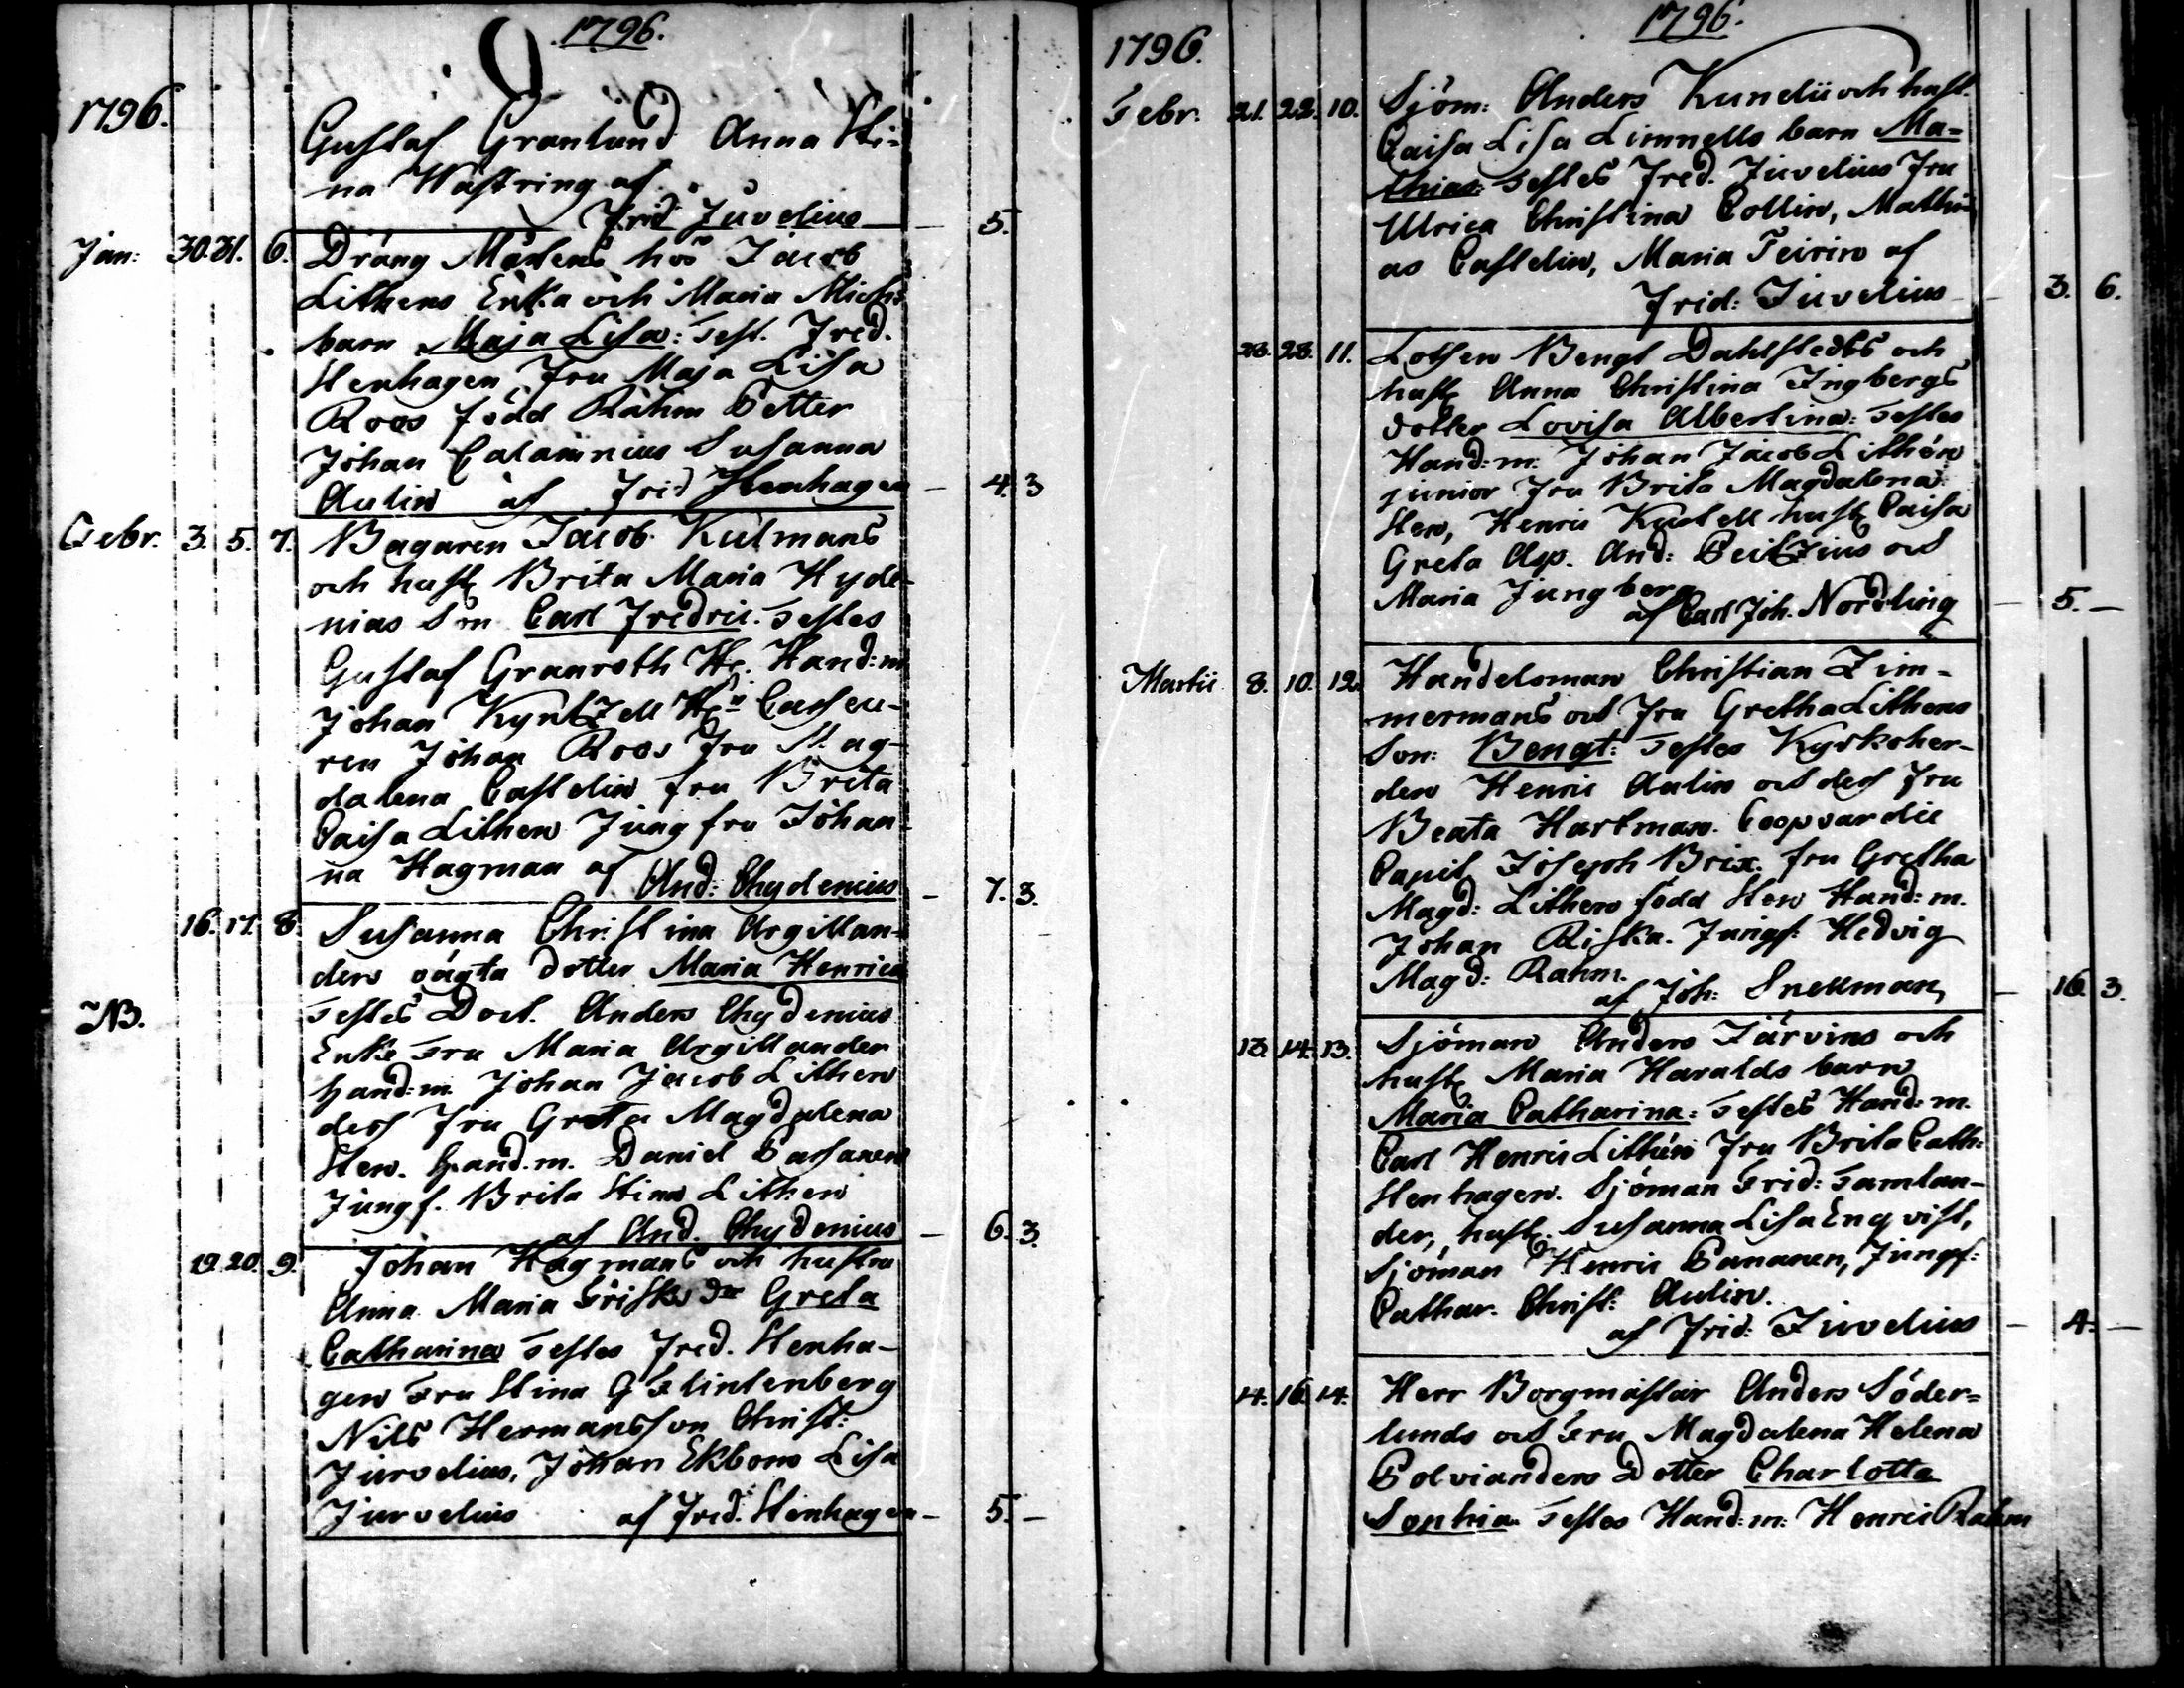 1796.
1796.
Gustaf Granlund Anna Sti-
na Wästring af
Frid Juvelius — 5.
Jan: 30. 31. 6. Dräng Mårtens hos Jacob
Lithens Enka och Maria Michs
barn Maja Lisa: Test. Fred.
Stenhagen, Fru Maja Lisa
Roos född Rahm Petter
Johan Calamnius Susanna
Aulin af Frid Stenhagen — 4. 3
Febr. 3. 5. 7. Bagaren Jacob Kulmans
och hust Brita Maria Hyde-
nias Son Carl Fredric. Testes
Gustaf Granroth Hr. Hand:m
Johan Kyntzell Hr
ren Johan Roos Fru Mag-
dalena Castelin fru Brita
Caisa Lithen Jungfru Johan-
na Hagman af And: Chydenius — 7. 3.
16. 17. 8. Susanna Christina Argillan-
ders oägta dotter Maria Henrica
NB.
Testes Doct. Anders Chydenius
Enke Fru Maria Argillander
Hand:m. Johan Jacob Lithen
dess Fru Greta Magdalena
Sten. Hand.m. Daniel
Jungf. Brita Stina Lithen
af And. Chydenius — 6. 3.
19. 20. 9. Johan Hagmans och hustru
Anna Maria Frisks dr Greta
Catharina Testes Fred. Stenha-
gen Fru Stina G Flintenberg
Nils Hermansson Christ:
Juvelius, Johan Ekbom Lisa
Juvelius af Fred. Stenhagen — 5. —
1796.
1796.
Febr. 21. 22. 10. Sjöm: Anders Kundii och hust.
Caisa Lisa Limnells barn Ma-
thias: Testes Fred. Juvelius Fru
Ulrica Christina Collin, Mathi
as Castelin, Maria Teirin af
Frid: Juvelius — 3. 6.
28. 28. 11. Lotsen Bengt Dahlstedts och
hust Anna Christina Jngbergs
dotter Lovisa Albertina: Testes
Hand:m. Johan Jacob Lithén
junior Fru Brita Magdalena
Sten, Henric hust Caisa
Greta Asp. And: och
Maria Jungberg
af Carl Joh. Nordling — 5. —
Martii 8. 10. 12. Handelsman Christian Zim-
mermans och Fru Gretha Lithens
Son: Bengt: Testes Kyrkoher-
den Henric Aulin och dess Fru
Beata Hartman. Coopvardie
Capit Joseph Brix. fru Gretha
Magd: Lithen född Sten Hand:m.
Johan Riska. Jungf: Hedvig
Magd: Rahm.
af Joh: Snellman — 16. 3.
13. 14. 13. Sjöman Anders Järvins och
hust Maria Haralds barn
Maria Catharina: Testes Hand:m.
Carl Henric Lithén Fru Brita Cath:
Stenhagen. Sjöman Frid: Tamlan-
der, hust. Susanna Lisa Enqvist,
Sjöman Henric Pananen, Jungf:
Cathar. Christ: Aulin.
af Frid: Juvelius — 4. —
14. 16. 14. Herr Borgmästar Anders Söder-
lunds och Fru Magdalena Helena
Polvianders Dotter Charlotta
Sophia Testes Hand:m: Henric Rahm